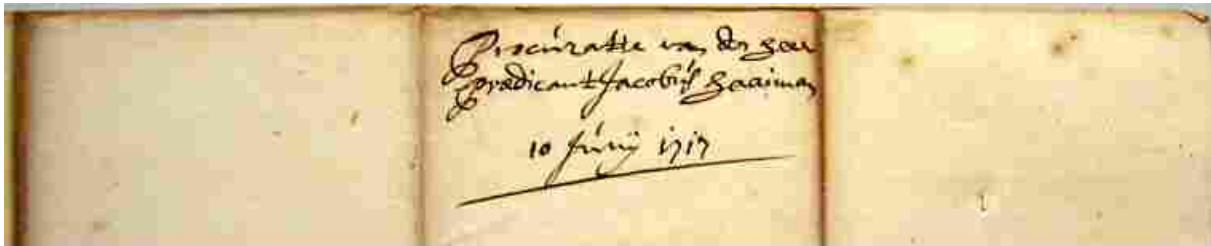 Procuratie van den heer
Prædicant Jacobus Haaiman
10 Junij 1717